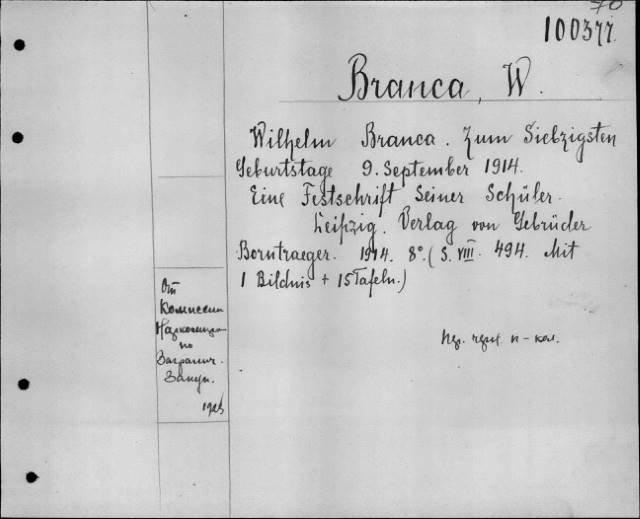 70
100377
Branca, W.
Wilhelm Branca. Zum Siebzigsten
Geburtstage 9. September 1914.
Eine Festschrift Seiner Schüler.
Leipzig. Verlag von Gebrüder
Borntraeger. 1914. 8°. (S. VIII. 494. Mit
1 Bildnis + 15 Tafeln.)
От
Комиссии
по
Загранич.
Закуп.